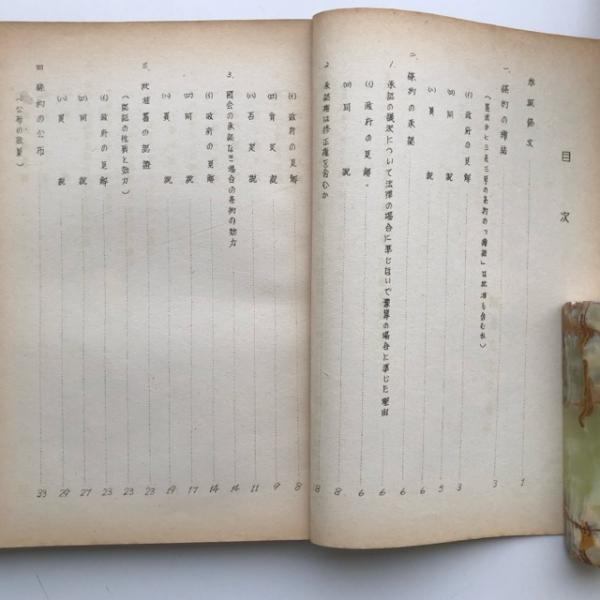 目次
参照条文 1
一、条約の締結 3
(憲法第七三条三号の条約の「締結」は批准も含むか)
(イ) 政府の見解 3
(ロ) 同説 5
(ハ) 異説 6
二、条約の承認 6
1. 承認の議決について法律の場合に準じないで予算の場合に準じた理由 6
(イ) 政府の見解 6
(ロ) 同説 8
2. 承認権は修正権を含むか 8
(イ) 政府の見解 8
(ロ) 肯定説 9
(ハ) 否定説 11
3. 国会の承認なき場合の条約の効力 14
(イ) 政府の見解 14
(ロ) 同説 17
(ハ) 異説 19
三、批准書の認証 23
(認証の性質と効力)
(イ) 政府の見解 23
(ロ) 同説 27
(ハ) 異説 29
四 条約の公布 33
(公布の效果)